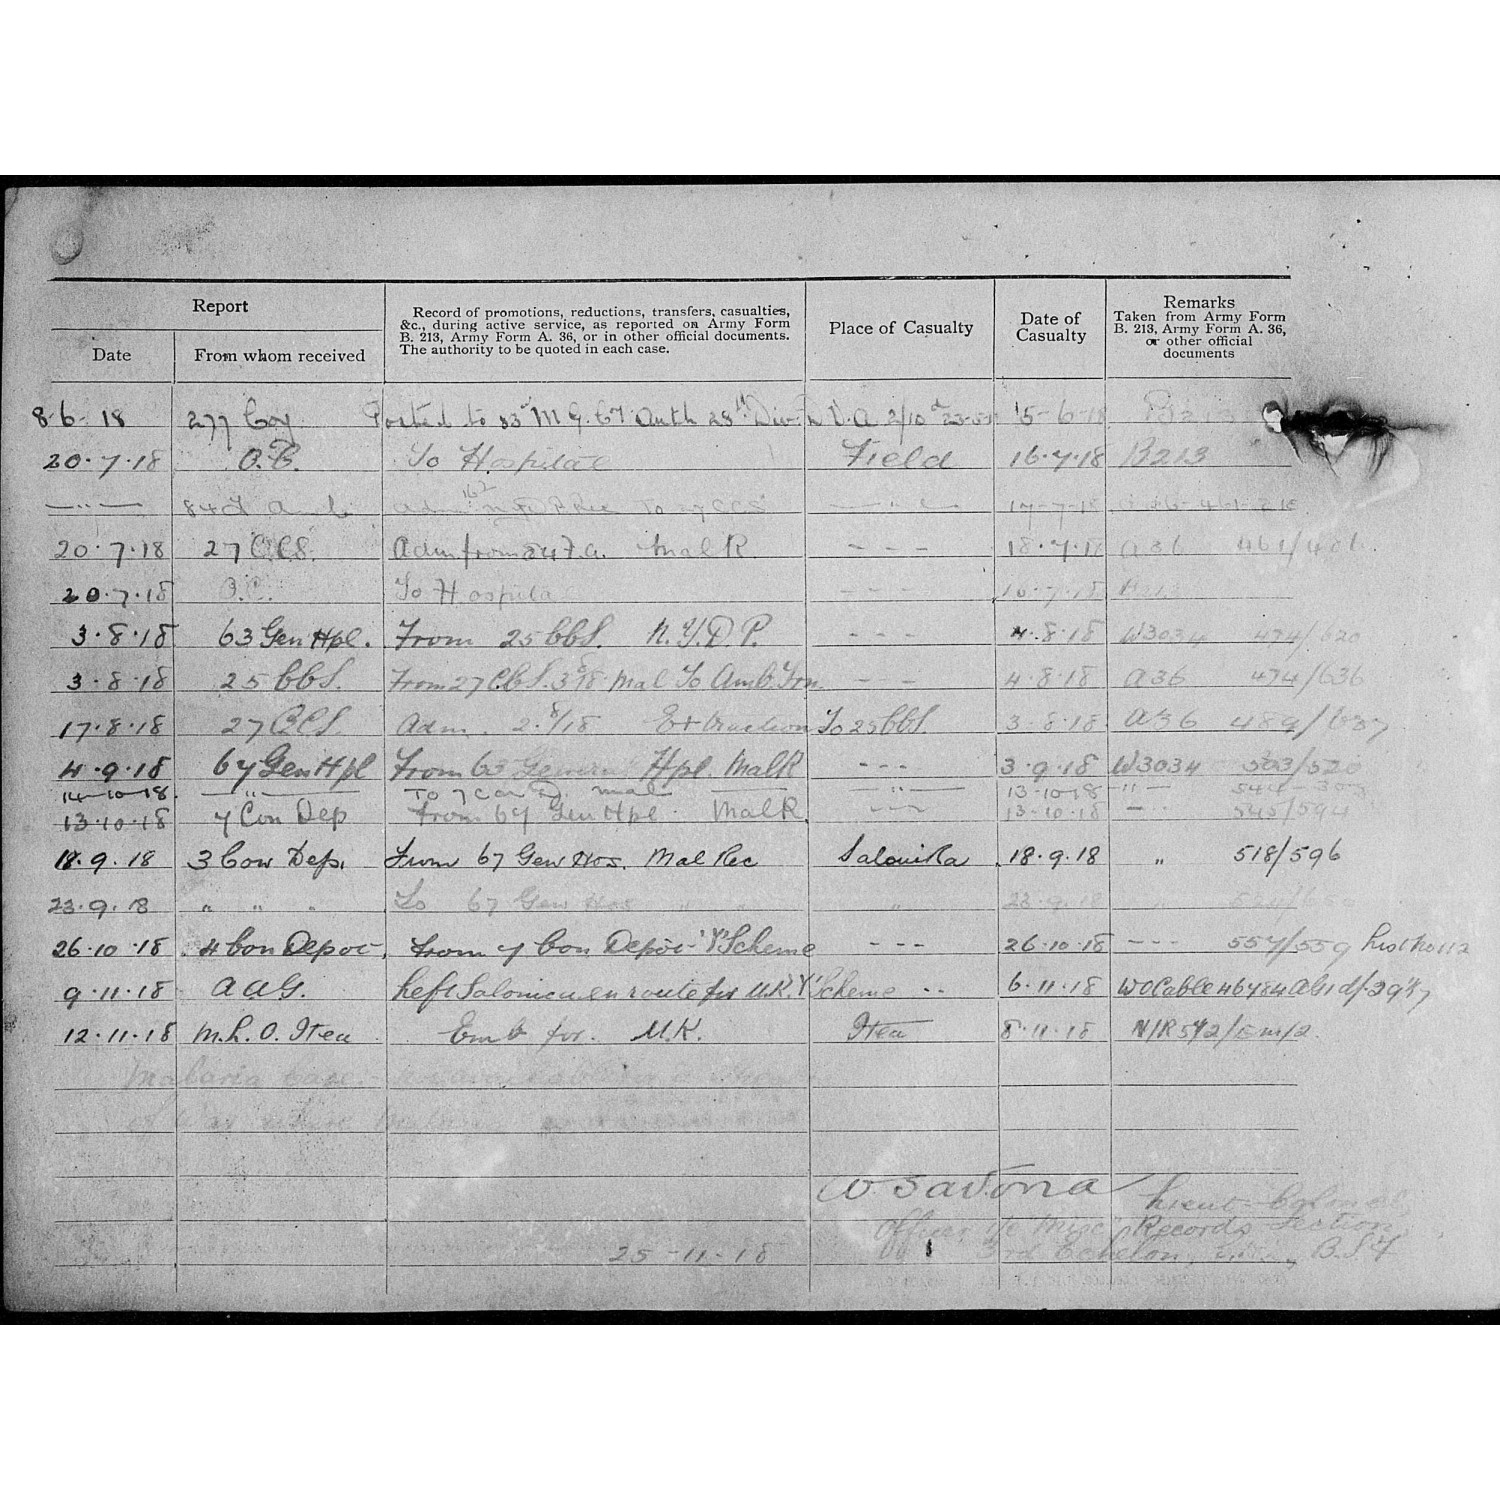 Report
Record of promotions, reductions, transfers, casualties, &c., during active service, as reported on Army Form B. 213, Army Form A. 36, or in other official documents. The authority to be quoted in each case.
Place of Casualty
Date of Casualty
Remarks
Taken from Army Form B. 213, Army Form A. 36, or other official documents
Date From whom received
8-6-18 277 Coy Posted to Auth 28th Div. D.A. 2/10 15-6-18
20.7.18 O.C. To Hospital Field 16.7.18 B213
— " — 84 To 17-7-18
20.7.18 27 CCS. Adm from 84 F.A. Mal R - - - 18.7.18 A36 461/406
20.7.18 O.C. To Hospital - - - 16.7.18
3.8.18 63 Gen Hpl. From 25 CCS. N.Y.D.P. - - - 4.8.18 W3034 474/620
3.8.18 25 CCS. From 27 CCS. Mal To Amb. Trn. - - - 4.8.18 A36 474/636
17.8.18 27 CCS. Adm. 2.8/18 Extraction To 25 CCS. 3.8.18. A36
4.9.18 67 Gen Hpl From 63 General Hpl. Mal R - - - 3.9.18 W3034 503/520
14-10-18. — " — To 7 Con D. Mal — " — 13-10-18 " —
13.10.18 7 Con Dep From 67 Gen Hpl. Mal R. - - - 13.10.18 - - 545/594
18.9.18 3 Con Dep. From 67 Gen Hos. Mal Rec Salonika 18.9.18 " 518/596
23.9.18 " " " To 67 Gen Hos " " " 23.9.18 "
26.10.18 4 Con Depot. From 7 Con Depot 'Y' Scheme - - - 26.10.18 - - - 557/559 List No 112
9.11.18 A A G. Left Salonica en route for U.K. 'Y' Scheme - - 6.11.18 WO Cable
12.11.18 M.L.O. Itea Emb for. U.K. Itea 8.11.18 N/R 572/Em/2.
Malaria
W Savona
Lieut-Colonel,
Officer i/c Records Section
25-11-18 3rd Echelon, B.S.F